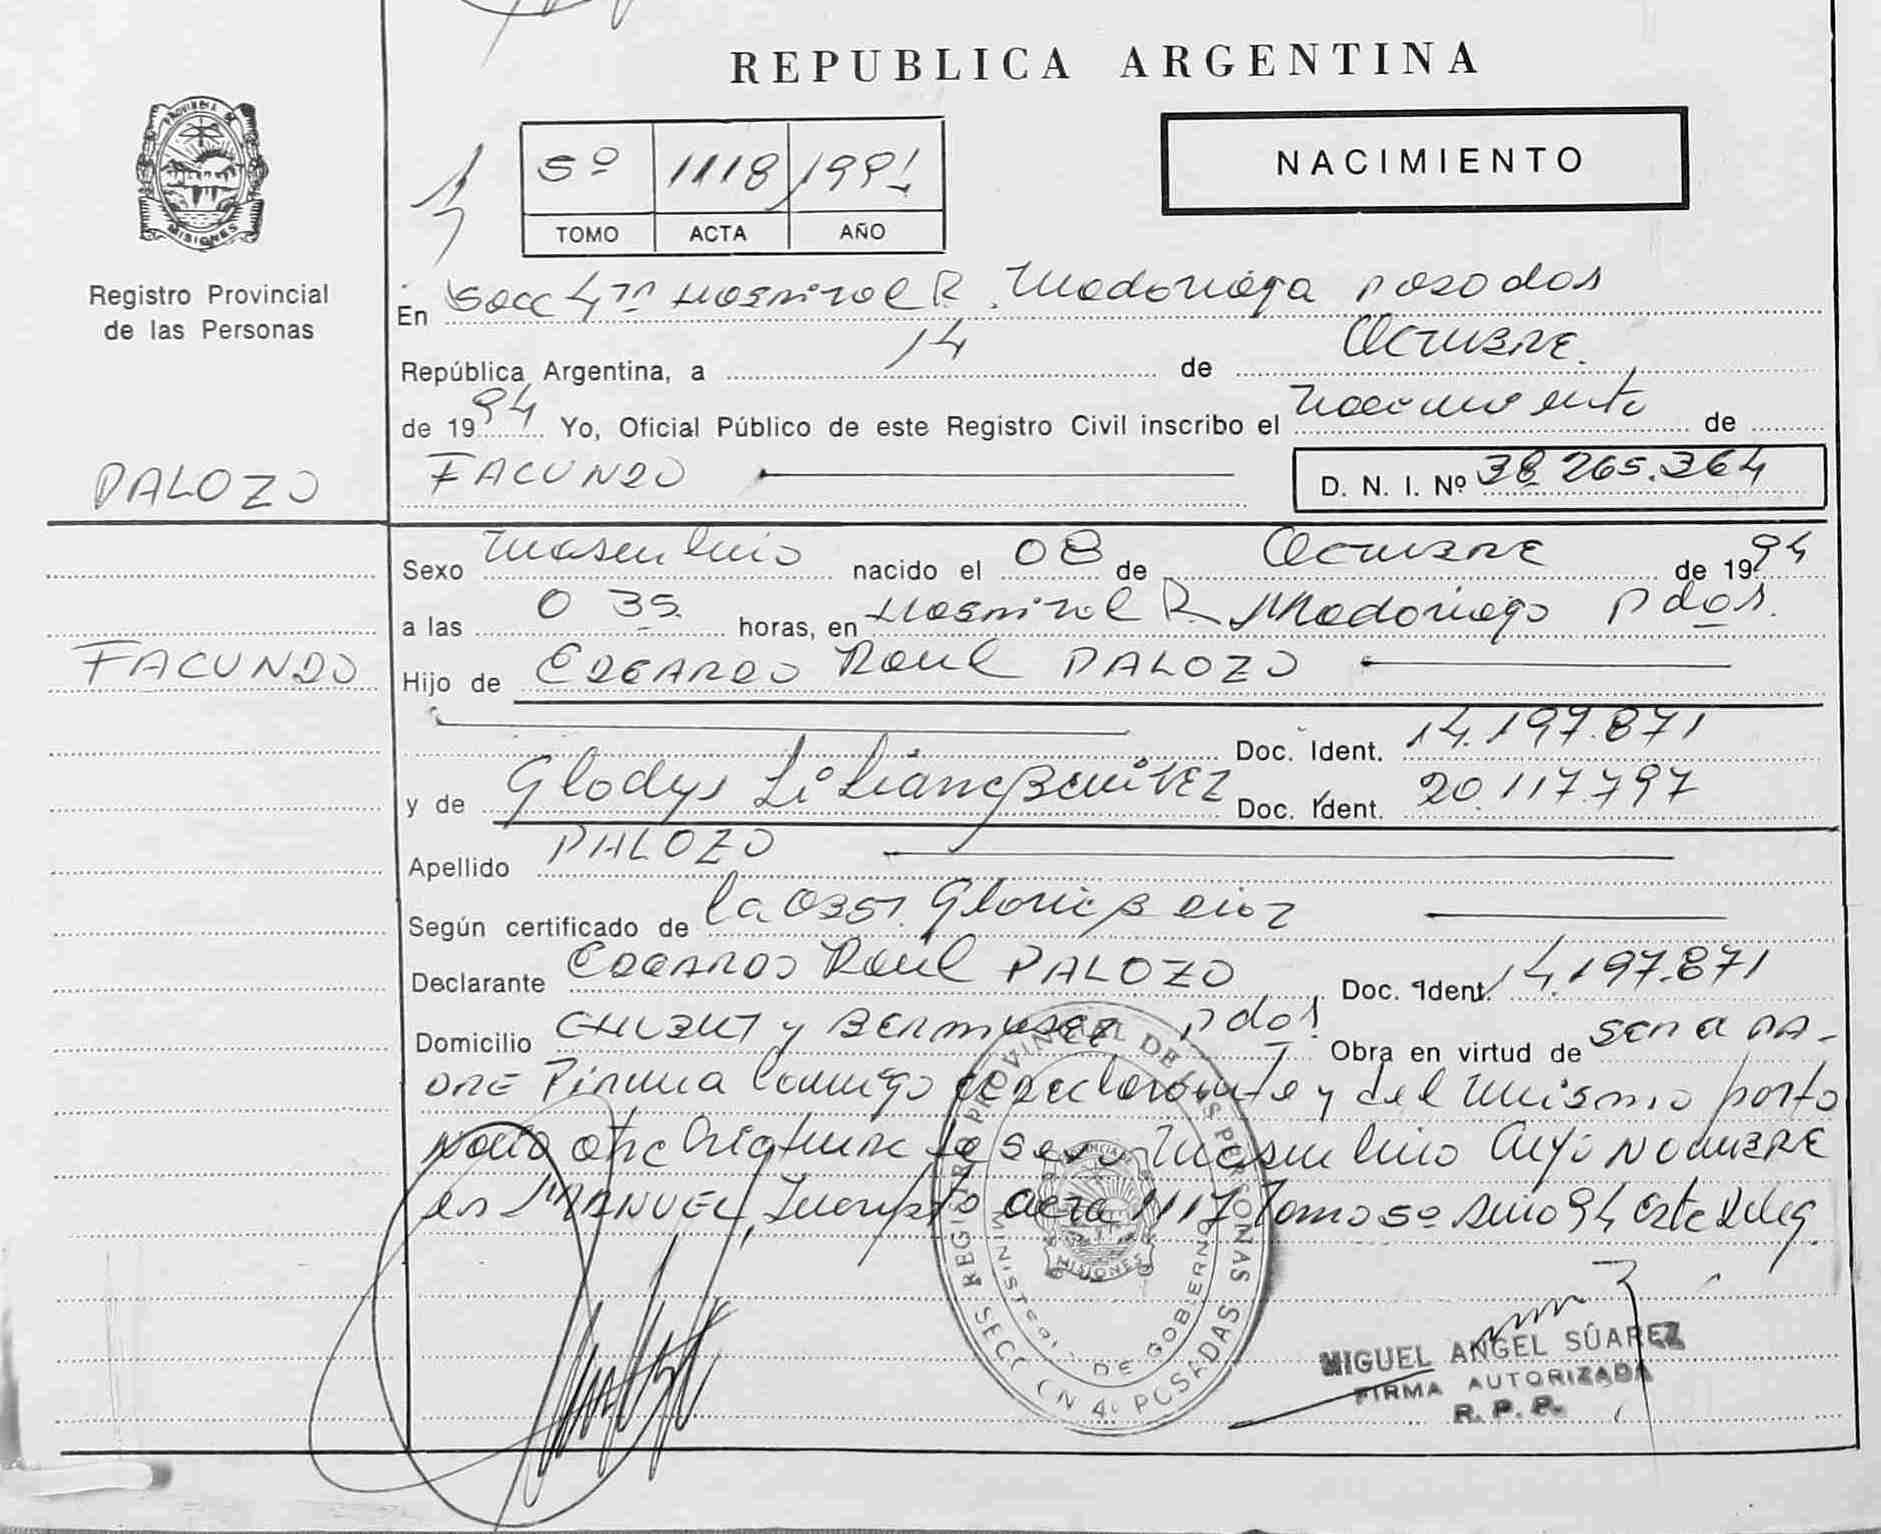 REPUBLICA ARGENTINA
PROVINCIA DE MISIONES
Registro Provincial
de las Personas
5º 1118 1994
TOMO ACTA AÑO
NACIMIENTO
En Secc 4ta Hospital R. Madariaga Posadas
República Argentina, a 14 de Octubre
de 1994 Yo, Oficial Público de este Registro Civil inscribo el Nacimiento de
PALOZO
FACUNDO
D. N. I. Nº 38.265.364
Sexo Masculino nacido el 08 de Octubre de 1994
a las 0 35 horas, en Hospital R. Madariaga Pdas.
FACUNDO
Hijo de EDGARDO Raul PALOZO
Doc. Ident. 14.197.871
y de Gladys Liliana Benitez Doc. Ident. 20.117.797
Apellido PALOZO
Según certificado de la Obst. Gloria
Declarante EDGARDO Raul PALOZO Doc. Ident. 14.197.871
Domicilio CHUBUT y BERMUDEZ Pdas. Obra en virtud de ser el PA-
DRE Firma conmigo el declarante y del mismo parto
nacio otra criatura de sexo Masculino cuyo NOMBRE
es MANUEL, Inscripto acta 1117 Tomo 5º año 94 este Deleg.
REGISTRO PROVINCIAL DE LAS PERSONAS
MINISTERIO DE GOBIERNO
MISIONES
SECCION 4ª POSADAS
MIGUEL ANGEL SÚAREZ
FIRMA AUTORIZADA
R. P. P.